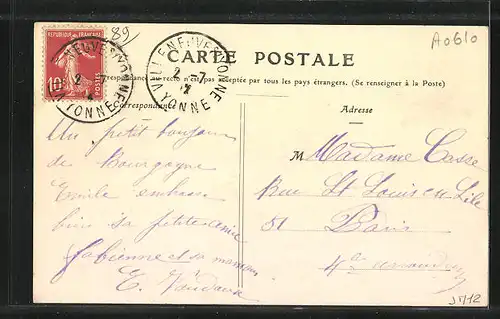 89)
A0610
REPUBLIQUE FRANÇAISE
10
VILLENEUVE S YONNE
2 -7
YONNE
VILLENEUVE S YONNE
2 -7
12
YONNE
CARTE POSTALE
correspondance au recto n'est pas acceptée par tous les pays étrangers. (Se renseigner à la Poste)
Correspondance
Adresse
Un petit bonjour
de Bourgogne
Emile embrasse
bien sa petite amie
fabienne et sa maman
E.
M Madame Casse
Rue St Louis en L'Ile
51 Paris
4e arrondis